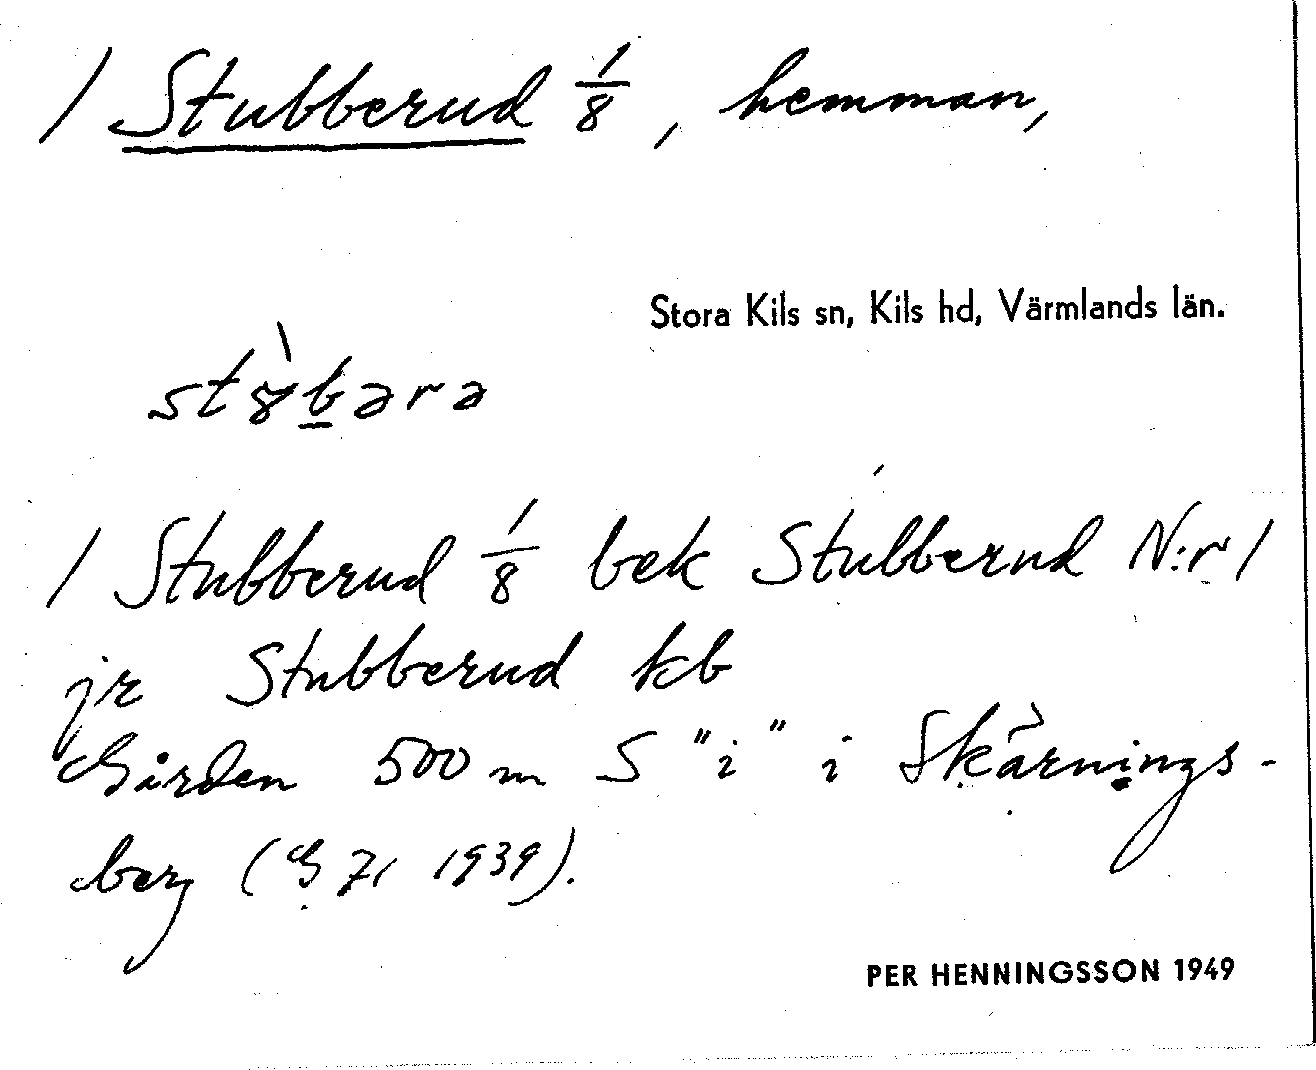 1 Stubberud 1/8, hemman,
Stora Kils sn, Kils hd, Värmlands län.
1 Stubberud 1/8 bek Stubberud N:r 1
jr Stubberud kb
Gården 500 m S "i" i Skärnings-
berg (G 71 1939).
PER HENNINGSSON 1949